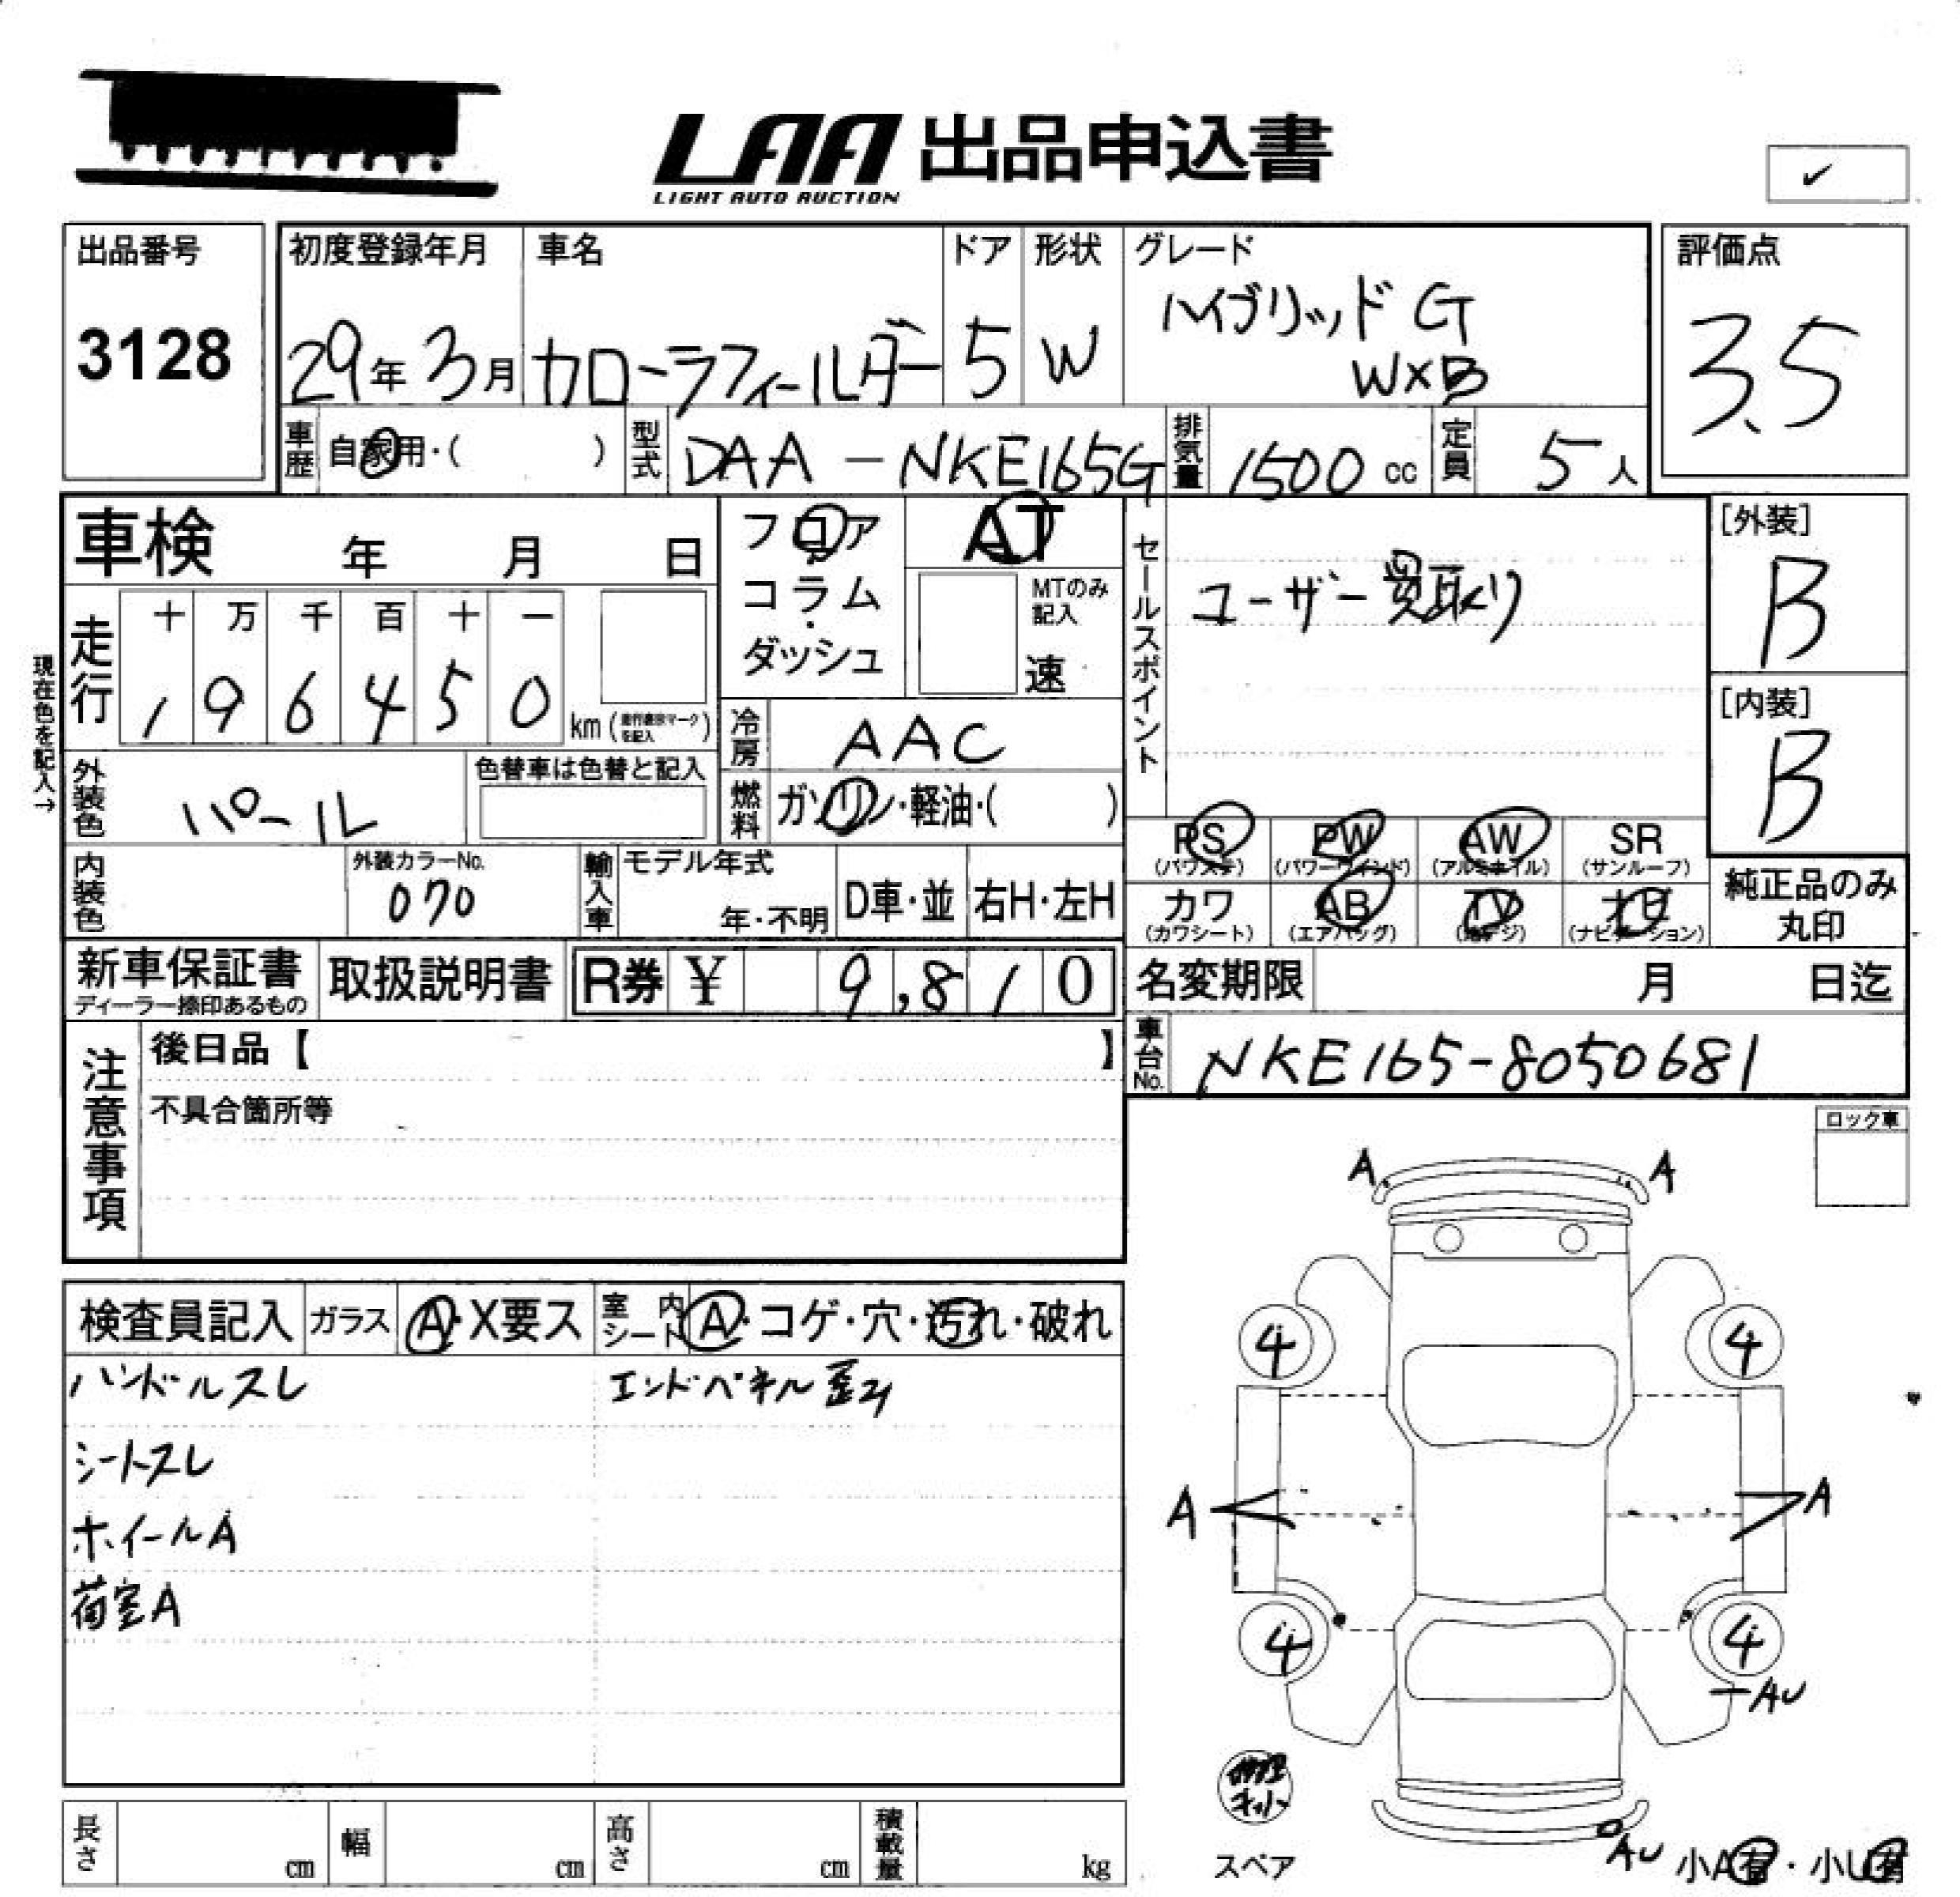 LAA 出品申込書
LIGHT AUTO AUCTION
✓
出品番号
3128
初度登録年月
29年3月
車名
カローラフィールダー
ドア
5
形状
W
グレード
ハイブリッドG
WxB
評価点
3.5
車歴 自家用・( )
型式 DAA-NKE165G
排気量 1500 cc
定員 5人
車検 年 月 日
現在色を記入→
走行
十 万 千 百 十 一
1 9 6 4 5 0 km (走行表示マークを記入)
フロア
・
コラム
・
ダッシュ
AT
MTのみ
記入
速
冷房 AAC
燃料 ガソリン・軽油・( )
外装色 パール
色替車は色替と記入
内装色
外装カラーNo.
070
輸入車
モデル年式
年・不明
D車・並
右H・左H
セールスポイント
ユーザー買取り
[外装]
B
[内装]
B
PS (パワステ)
PW (パワーウインド)
AW (アルミホイル)
SR (サンルーフ)
カワ (カワシート)
AB (エアバッグ)
TV (地デジ)
ナビ (ナビゲーション)
純正品のみ
丸印
新車保証書
ディーラー捺印あるもの
取扱説明書
R券 ¥ 9,810
名変期限 月 日迄
車台No. NKE165-8050681
注意事項
後日品【 】
不具合箇所等
ロック車
検査員記入
ガラス A・X要ス
室内シート A・コゲ・穴・汚れ・破れ
ハンドルスレ
エンドパネル歪み
シートスレ
ホイールA
荷室A
A A
4 4
A A
4 4
AU
修理キット
スペア
AU
小A有・小U有
長さ cm
幅 cm
高さ cm
積載量 kg